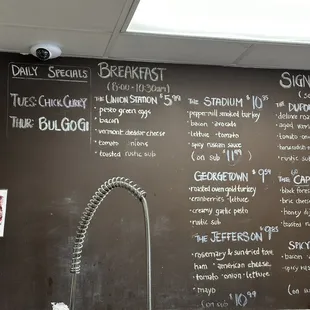 DAILY SPECIALS
TUES: CHICK. CURRY
THUR: BULGOGI
BREAKFAST
(8:00 - 10:30am)
THE UNION STATION $5.99
• pesto green eggs
• bacon
• vermont cheddar cheese
• tomato • onions
• toasted rustic sub
THE STADIUM $10.35
• peppermill smoked turkey
• bacon • avocado
• lettuce • tomato
• spicy russian sauce
(on sub $11.49)
GEORGETOWN $9.59
• roasted oven gold turkey
• cranberries • lettuce
• creamy garlic pesto
• rustic sub
THE JEFFERSON $9.85
• rosemary & sundried tomato
ham • american cheese
• tomato • onion • lettuce
• mayo
(on sub $10.99)
SIGN
THE DUPO
• deluxe roa
• aged ver
• tomato
• rustic sub
THE CAP
• black fores
• brie chees
• honey dij
SPICY
• bacon
• spicy
(on